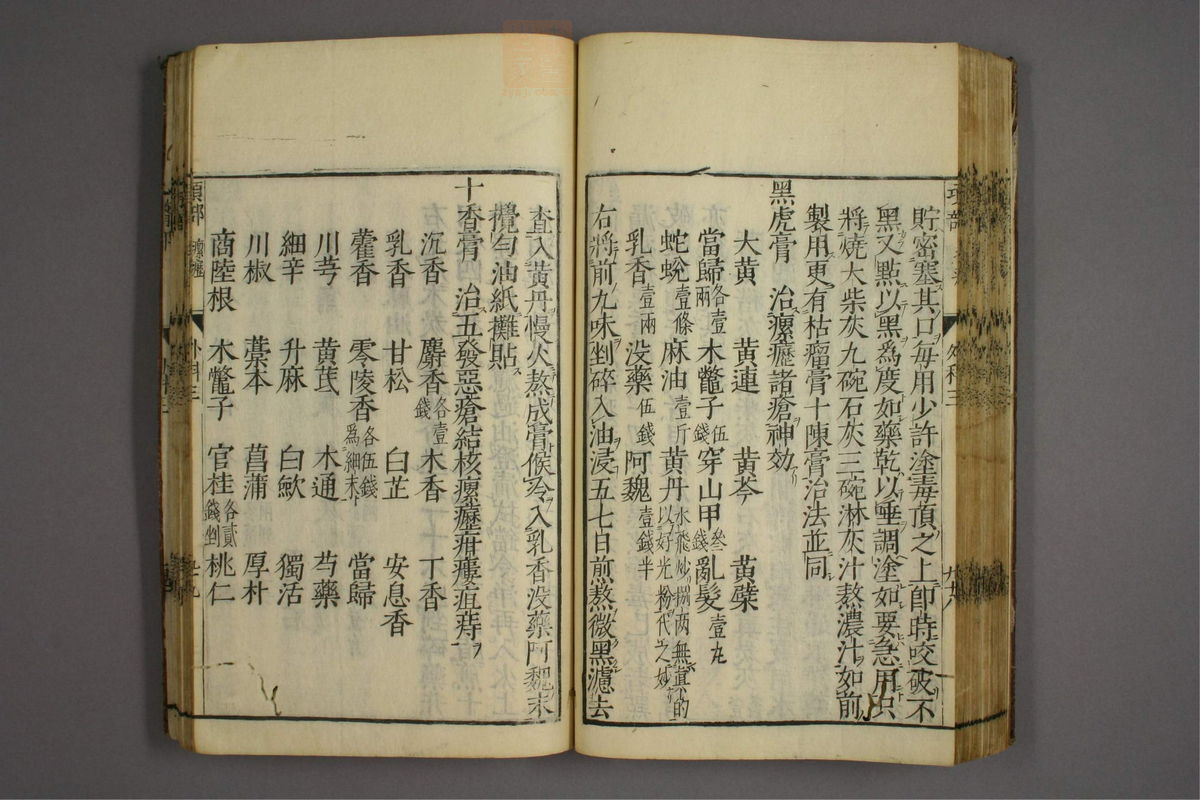 貯密塞其口毎用少許塗毒頂之上即時咬破不
黑又點以黑為度如藥乾以唾調塗如要急用只
將燒大柴灰九碗石灰三碗淋灰汁熬濃汁如前
製用更有枯瘤膏十陳膏治法並同
黑虎膏 治瘰癧諸瘡神効
大黄 黄連 黄芩 黄蘗
當歸各壹兩 木鼈子伍錢 穿山甲叄錢 亂髪壹丸
蛇蛻壹條 麻油壹斤 黄丹水飛炒捌两無真正的以好光粉代之妙
乳香壹兩 没藥伍錢 阿魏壹錢半
右將前九味剉碎入油浸五七日煎熬微黑濾去
査入黄丹慢火熬成膏候冷入乳香没藥阿魏末
攪勻油紙攤貼
十香膏 治五發惡瘡結核瘰癧疳瘻疽痔
沉香 麝香各壹錢 木香 丁香
乳香 甘松 白芷 安息香
藿香 零陵香各伍錢為細末 當歸
川芎 黄芪 木通 芍藥
細辛 升麻 白蘞 獨活
川椒 藁本 菖蒲 厚朴
商陸根 木鼈子 官桂各貳錢剉 桃仁
項部 瘰癧